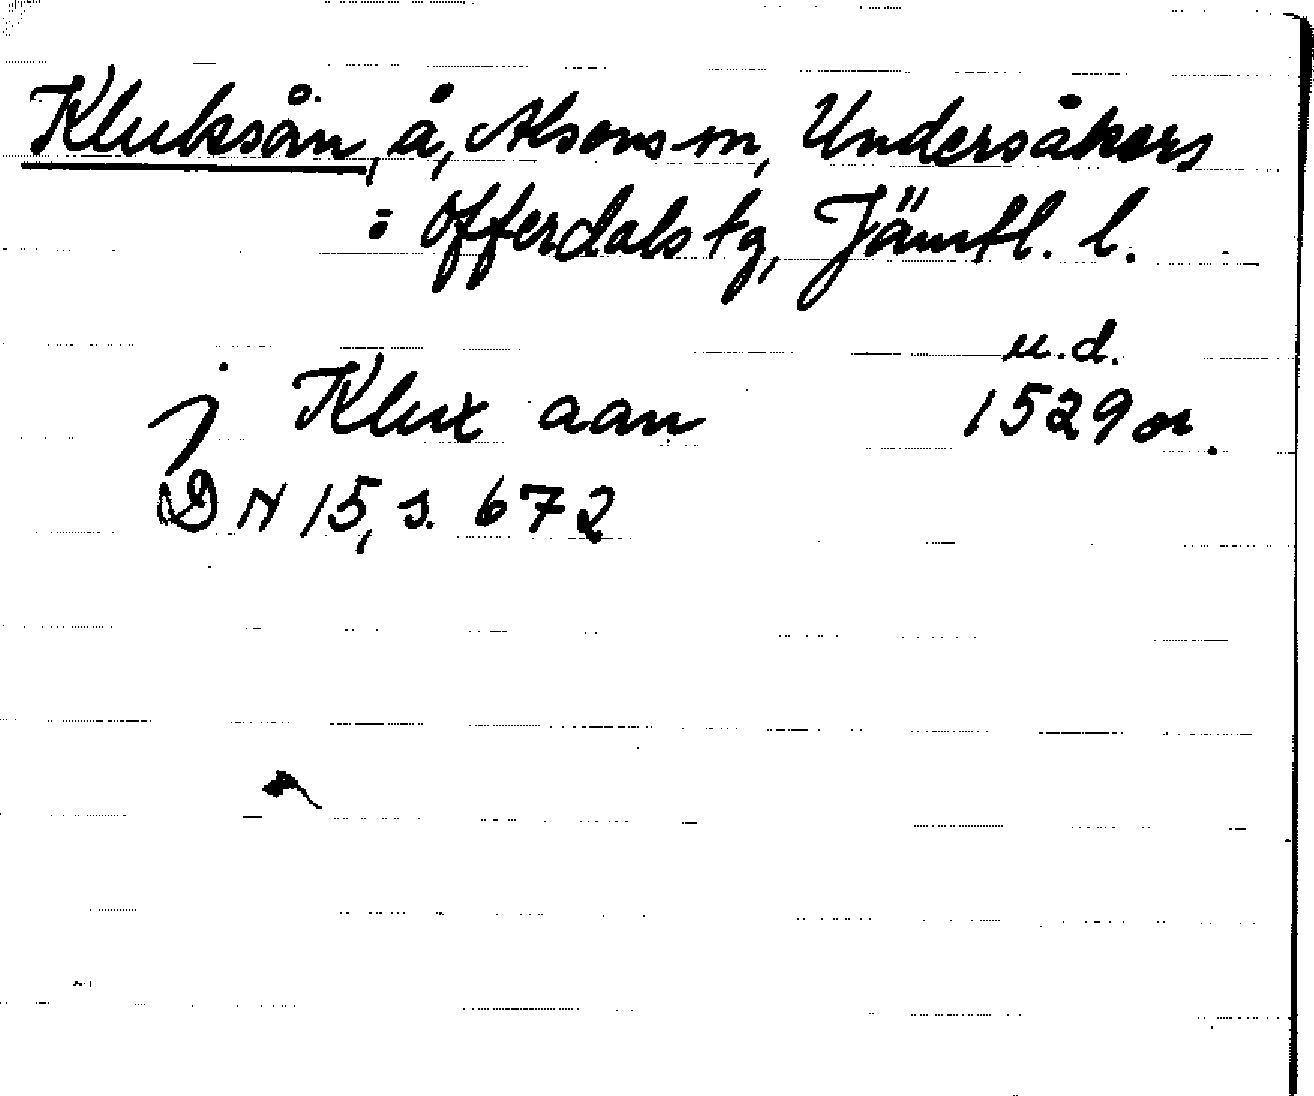 Kluksån, å, Alsens sn, Undersåkers
o Offerdals tg, Jämtl. l.
j Klux aan u.d. 1529 or.
DN 15, s. 672